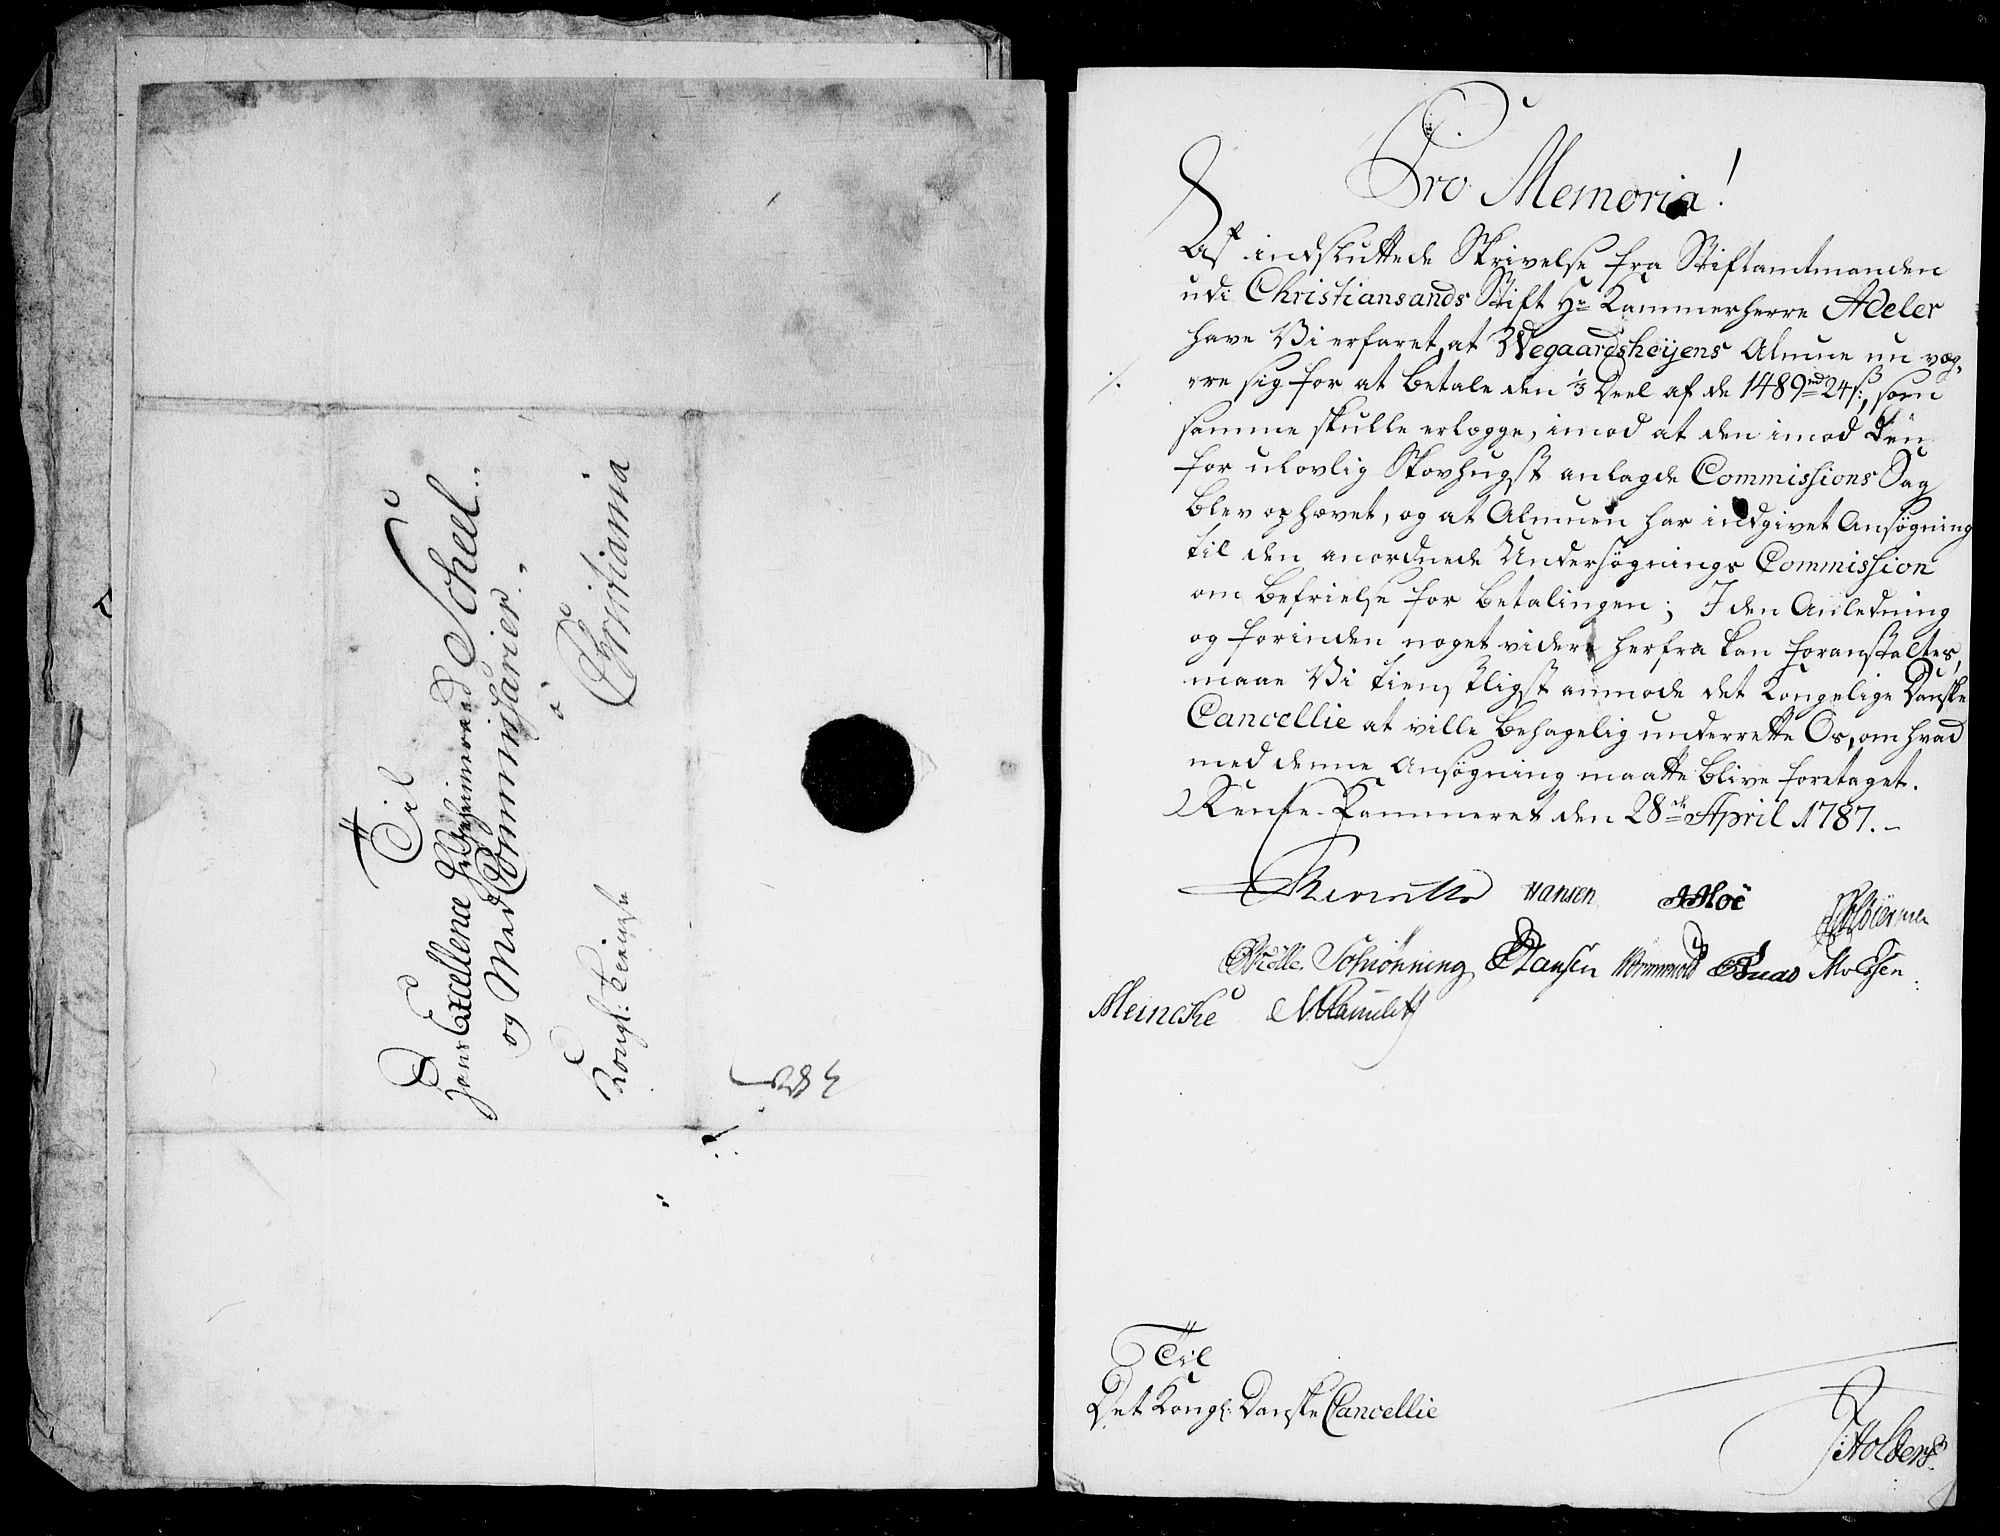 Til
Hans Excellence Geheimeraad Scheel
og Med Commissarier
á
Christiania
Kongl: Tieneste
Pro Memoria!
Af indsluttede Skrivelse fra Stiftamtmanden
udi Christiansands Stift Hr Kammerherre Adeler
have Vi erfaret, at Wegaardsheyens Almue nu væg-
re sig for at betale den 1/3 Deel af de 1489 rd 24 ß, som
samme skulle erlægge, imod at den imod den
for ulovlig Skovhugst anlagde Commissions Sag
blev ophævet, og at Almuen har indgivet Ansøgning
til den anordnede Undersøgnings Commission
om Befrielse for Betalingen; I den Anledning
og forinden noget videre herfra kan foranstaltes,
maae Vi tienstligst anmode det Kongelige Danske
Cancellie at ville behagelig underrette Os, om hvad
med denne Ansøgning maatte blive foretaget.
Rente-Kammeret den 28de April 1787.
Hansen
Schiönning Hansen
Meincke
Til
Det Kongl: Danske Cancellie